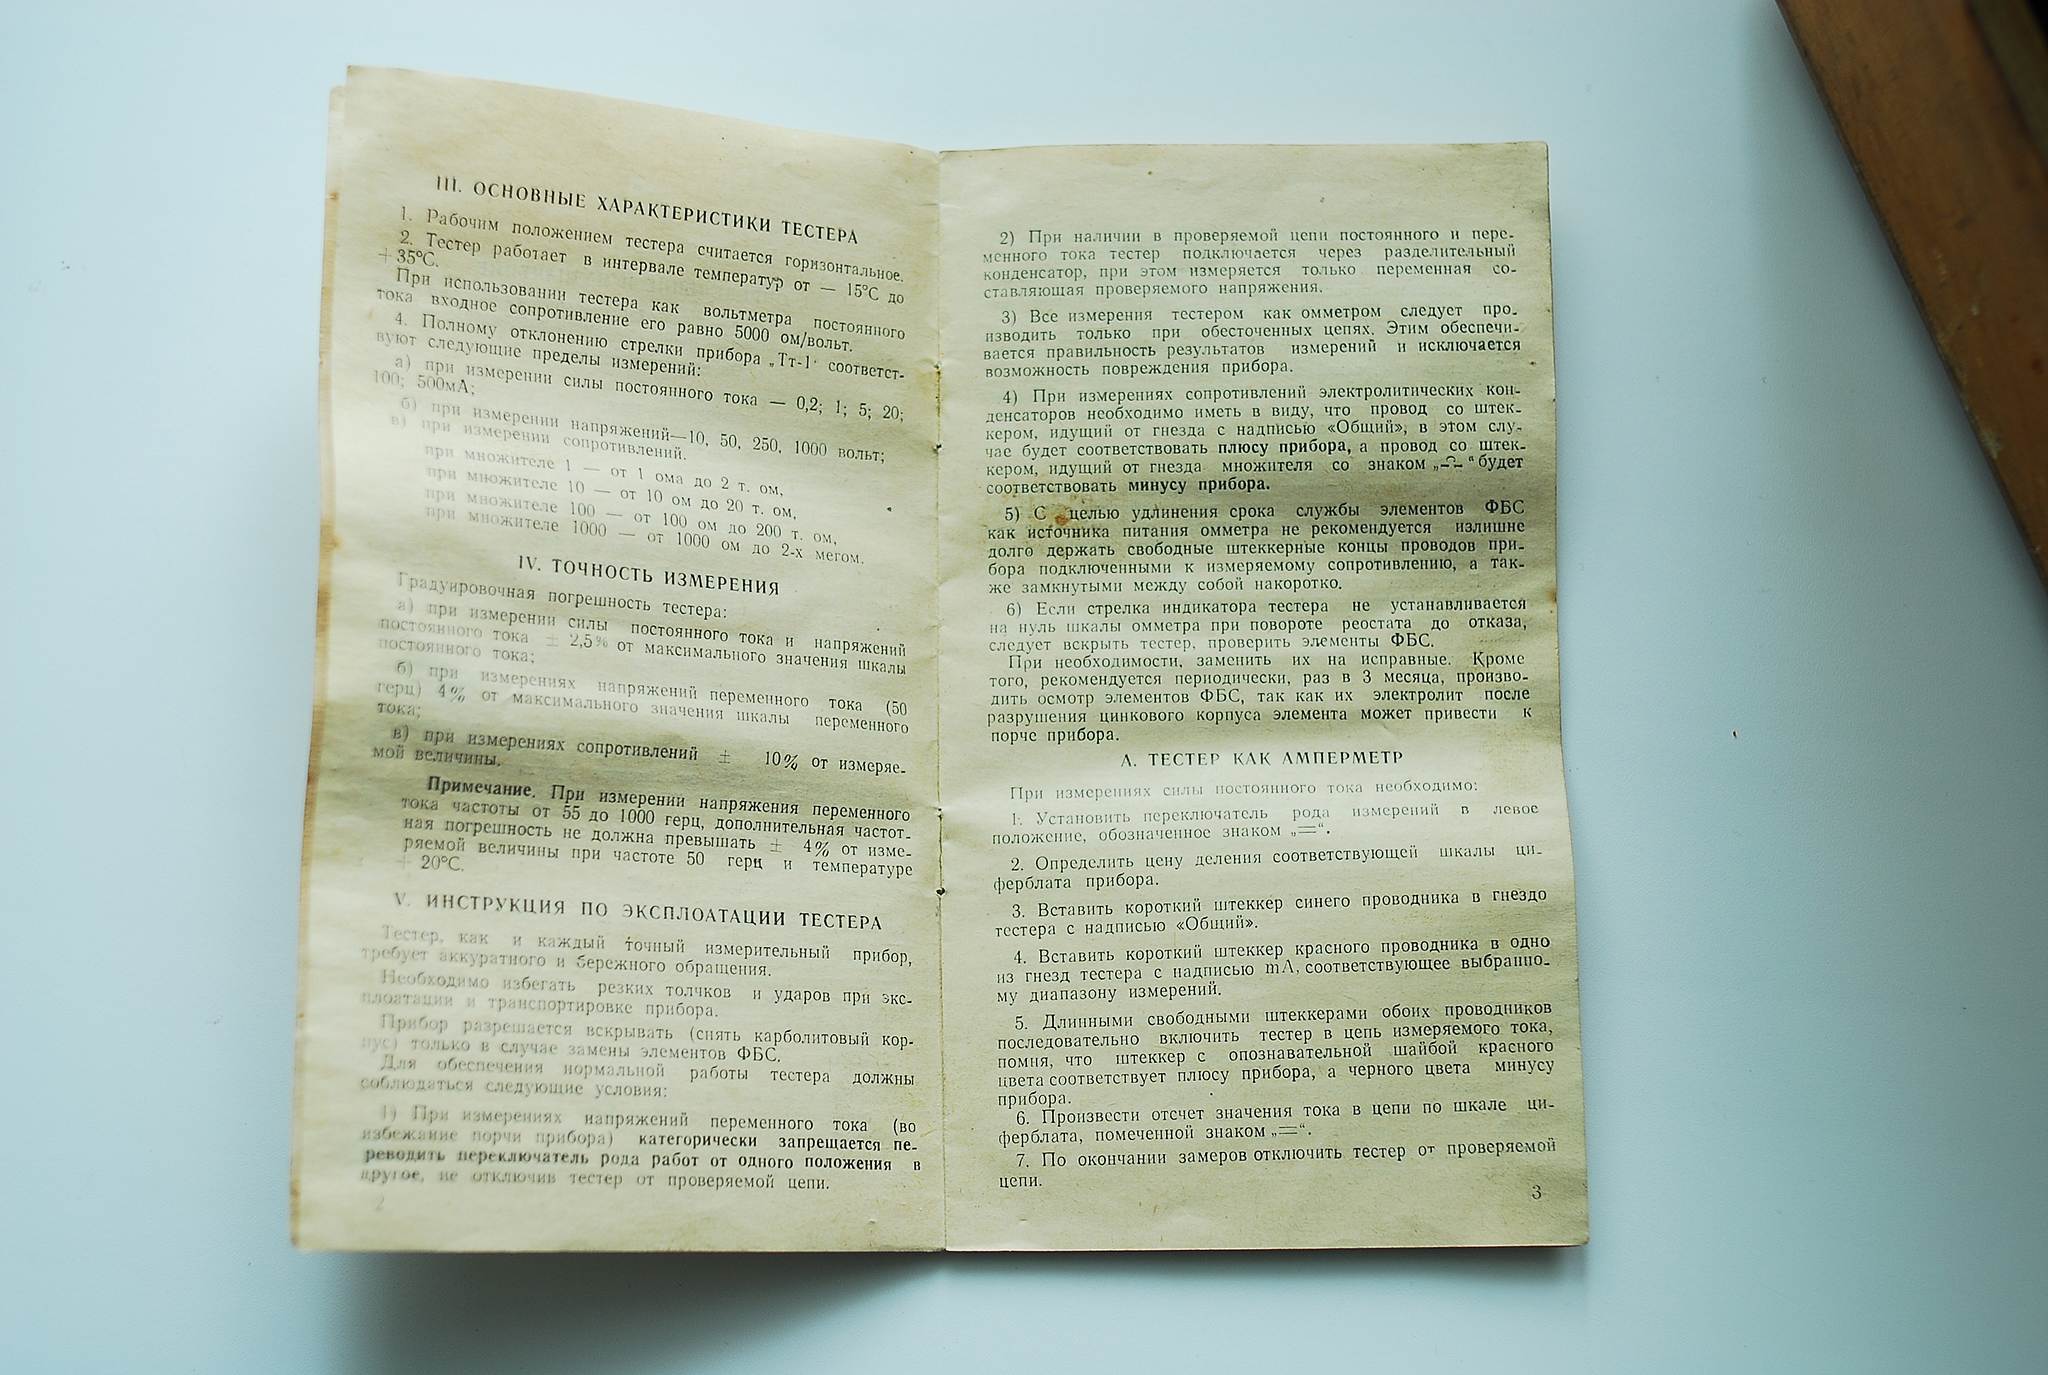 III. ОСНОВНЫЕ ХАРАКТЕРИСТИКИ ТЕСТЕРА
1. Рабочим положением тестера считается горизонтальное.
2. Тестер работает в интервале температур от — 15°С до
+ 35°С.
При использовании тестера как вольтметра постоянного
тока входное сопротивление его равно 5000 ом/вольт.
4. Полному отклонению стрелки прибора „Тт-1" соответст-
вуют следующие пределы измерений:
а) при измерении силы постоянного тока — 0,2; 1; 5; 20;
100; 500мА;
б) при измерении напряжений—10, 50, 250, 1000 вольт;
в) при измерении сопротивлений.
при множителе 1 — от 1 ома до 2 т. ом,
при множителе 10 — от 10 ом до 20 т. ом,
при множителе 100 — от 100 ом до 200 т. ом,
при множителе 1000 — от 1000 ом до 2-х мегом.
IV. ТОЧНОСТЬ ИЗМЕРЕНИЯ
Градуировочная погрешность тестера:
а) при измерении силы постоянного тока и напряжений
постоянного тока ± 2,5% от максимального значения шкалы
постоянного тока;
б) при измерениях напряжений переменного тока (50
герц) 4% от максимального значения шкалы переменного
тока;
в) при измерениях сопротивлений ± 10% от измеряе-
мой величины.
Примечание. При измерении напряжения переменного
тока частоты от 55 до 1000 герц, дополнительная частот-
ная погрешность не должна превышать ± 4% от изме-
ряемой величины при частоте 50 герц и температуре
+ 20°С.
V. ИНСТРУКЦИЯ ПО ЭКСПЛОАТАЦИИ ТЕСТЕРА
Тестер, как и каждый точный измерительный прибор,
требует аккуратного и бережного обращения.
Необходимо избегать резких толчков и ударов при экс-
плоатации и транспортировке прибора.
Прибор разрешается вскрывать (снять карболитовый кор-
пус) только в случае замены элементов ФБС.
Для обеспечения нормальной работы тестера должны
соблюдаться следующие условия:
1) При измерениях напряжений переменного тока (во
избежание порчи прибора) категорически запрещается пе-
реводить переключатель рода работ от одного положения в
другое, не отключив тестер от проверяемой цепи.
2
2) При наличии в проверяемой цепи постоянного и пере-
менного тока тестер подключается через разделительный
конденсатор, при этом измеряется только переменная со-
ставляющая проверяемого напряжения.
3) Все измерения тестером как омметром следует про-
изводить только при обесточенных цепях. Этим обеспечи-
вается правильность результатов измерений и исключается
возможность повреждения прибора.
4) При измерениях сопротивлений электролитических кон-
денсаторов необходимо иметь в виду, что провод со штек-
кером, идущий от гнезда с надписью «Общий», в этом слу-
чае будет соответствовать плюсу прибора, а провод со штек-
кером, идущий от гнезда множителя со знаком будет
соответствовать минусу прибора.
5) С целью удлинения срока службы элементов ФБС
как источника питания омметра не рекомендуется излишне
долго держать свободные штеккерные концы проводов при-
бора подключенными к измеряемому сопротивлению, а так-
же замкнутыми между собой накоротко.
6) Если стрелка индикатора тестера не устанавливается
на нуль шкалы омметра при повороте реостата до отказа,
следует вскрыть тестер, проверить элементы ФБС.
При необходимости, заменить их на исправные. Кроме
того, рекомендуется периодически, раз в 3 месяца, произво-
дить осмотр элементов ФБС, так как их электролит после
разрушения цинкового корпуса элемента может привести к
порче прибора.
А. ТЕСТЕР КАК АМПЕРМЕТР
При измерениях силы постоянного тока необходимо:
1. Установить переключатель рода измерений в левое
положение, обозначенное знаком „=“.
2. Определить цену деления соответствующей шкалы ци-
ферблата прибора.
3. Вставить короткий штеккер синего проводника в гнездо
тестера с надписью «Общий».
4. Вставить короткий штеккер красного проводника в одно
из гнезд тестера с надписью mA, соответствующее выбранно-
му диапазону измерений.
5. Длинными свободными штеккерами обоих проводников
последовательно включить тестер в цепь измеряемого тока,
помня, что штеккер с опознавательной шайбой красного
цвета соответствует плюсу прибора, а черного цвета минусу
прибора.
6. Произвести отсчет значения тока в цепи по шкале ци-
ферблата, помеченной знаком „=“.
7. По окончании замеров отключить тестер от проверяемой
цепи.
3